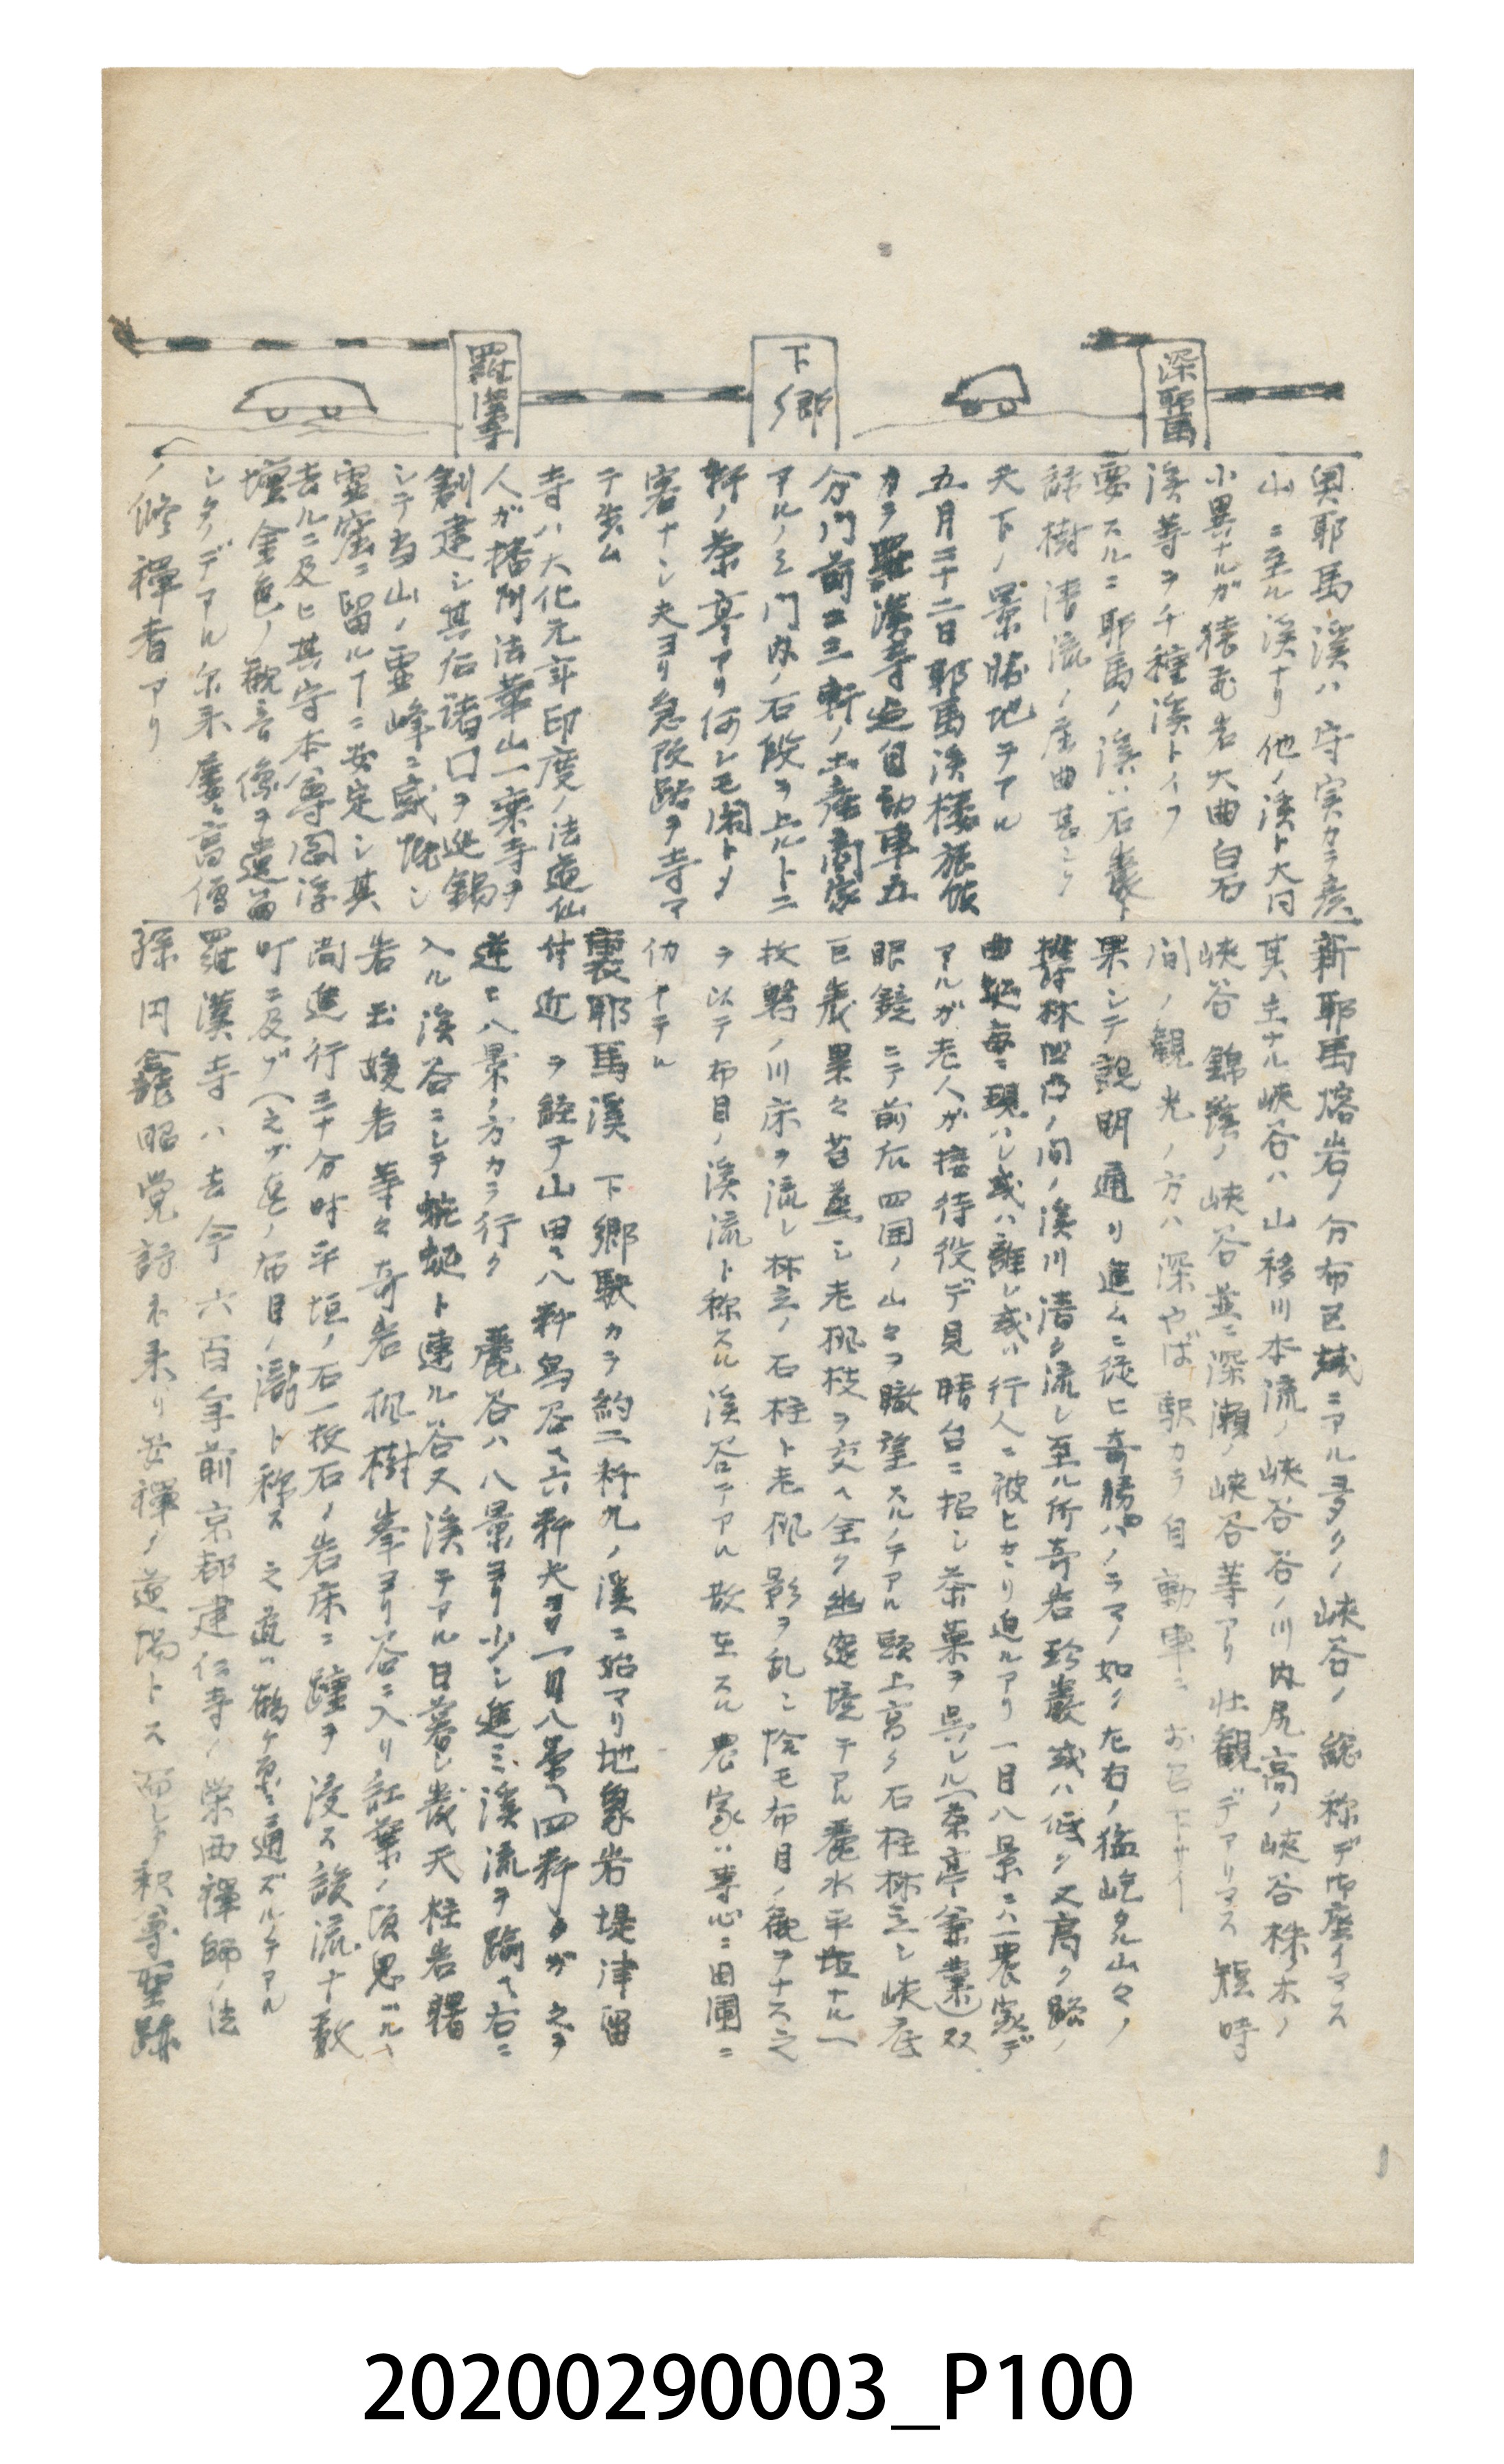 深耶馬
下郷
羅漢寺
奥耶馬溪ハ守実カラ彦
山ニ至ル溪ナリ他ノ溪ト大同
小異ナルガ猿飛岩大曲白石
溪等ヲ千種溪トイフ
要スルニ耶馬ノ溪ハ石巖ト
緑樹清流ノ屈曲甚シク
天下ノ景勝地デアル
五月二十二日耶馬溪楼旅館
カラ羅漢寺迄自動車五
分門前ニ三軒ノ土産商家
アルノミ門内ノ石段ヲ上ルト二
軒ノ茶亭アリ何レモ閑トシ
客ナシ夫ヨリ急阪路ヲ寺マ
デ歩ム
寺ハ大化元年印度ノ法道仙
人ガ播州法華山一乗寺ヲ
創建シ其后諸口ヲ巡錫
シテ当山ノ霊峰ニ感慨シ
霊窟ニ留ルコトニ安定シ其
去ルニ及ヒ其守本尊閻浮
壇金色ノ観音像ヲ遺留
シタノデアル尓来屡々高僧
ノ修禅者アリ
新耶馬熔岩ノ分布区域ニアル多クノ峡谷ノ総称デ御座イマス
其主ナル峡谷ハ山移川本流ノ峡谷谷ノ川内尻高ノ峡谷株木ノ
峡谷錦雲ノ峡谷並ニ深瀬ノ峡谷等アリ壮観デアリマス短時
間ノ観光ノ方ハ深やば駅カラ自動車ニお召下サイ
果シテ説明通リ進ムニ従ヒ奇勝ハノラマノ如ク左右ノ猛屹タル山々ノ
樹林凹凸ノ間ノ溪川清ク流レ至ル所奇岩珍巖或ハ低ク又高ク路ノ
曲蜒毎ニ現ハレ或ハ離レ或ハ行人ニ被ヒカヽリ迫ルアリ一目八景ニハ一農家デ
アルガ老人ガ接待役デ見晴台ニ招シ茶菓ヲ呉レル(茶亭兼業)双
眼鏡ニテ前后四囲ノ山々ヲ瞰望スルノデアル頭上高ク石柱林立シ峡底
巨巖累々苔蒸シ老楓枝ヲ交ヘ全ク幽邃境デアル麓水平坦ナル一
枚磐ノ川床ヲ流レ林立ノ石柱ト老楓影ヲ乱シ恰モ布目ノ観ヲナス之
ヲ以テ布目ノ溪流ト称スル溪谷デアル散在スル農家ハ専心ニ田圃ニ
仂ヤテル
裏耶馬溪 下郷駅カラ約二粁九ノ溪ニ始マリ地象岩堤津留
付近ヲ経テ山田ヘ八粁鳥居ヘ六粁夫ヨリ一目八景ヘ四粁タガ之ヲ
逆ニ八景ノ方カラ行ク 麗谷ハ八景ヨリ少シ進ミ溪流ヲ踰ヘ右ニ
入ル溪谷ニシテ蜿蜒ト連ル谷又溪デアル日暮シ巖天柱岩曙
岩玉嬢岩等々奇岩楓樹峯ヨリ谷ニ入リ紅葉ノ頃思ハル
尚進行三十分時平坦ノ石一枚石ノ岩床ニ踵ヲ浸ス淺流十数
町ニ及ブ(之ガ真ノ布目ノ瀧ト称ス之道ハ鶴ケ原ニ通ズルノデアル
羅漢寺ハ去今六百年前京都建仁寺ノ栄西禅師ノ法
孫円龕昭覚詩ホ来リ安禅ノ道場トス而シテ釈尊聖跡
20200290003_P100